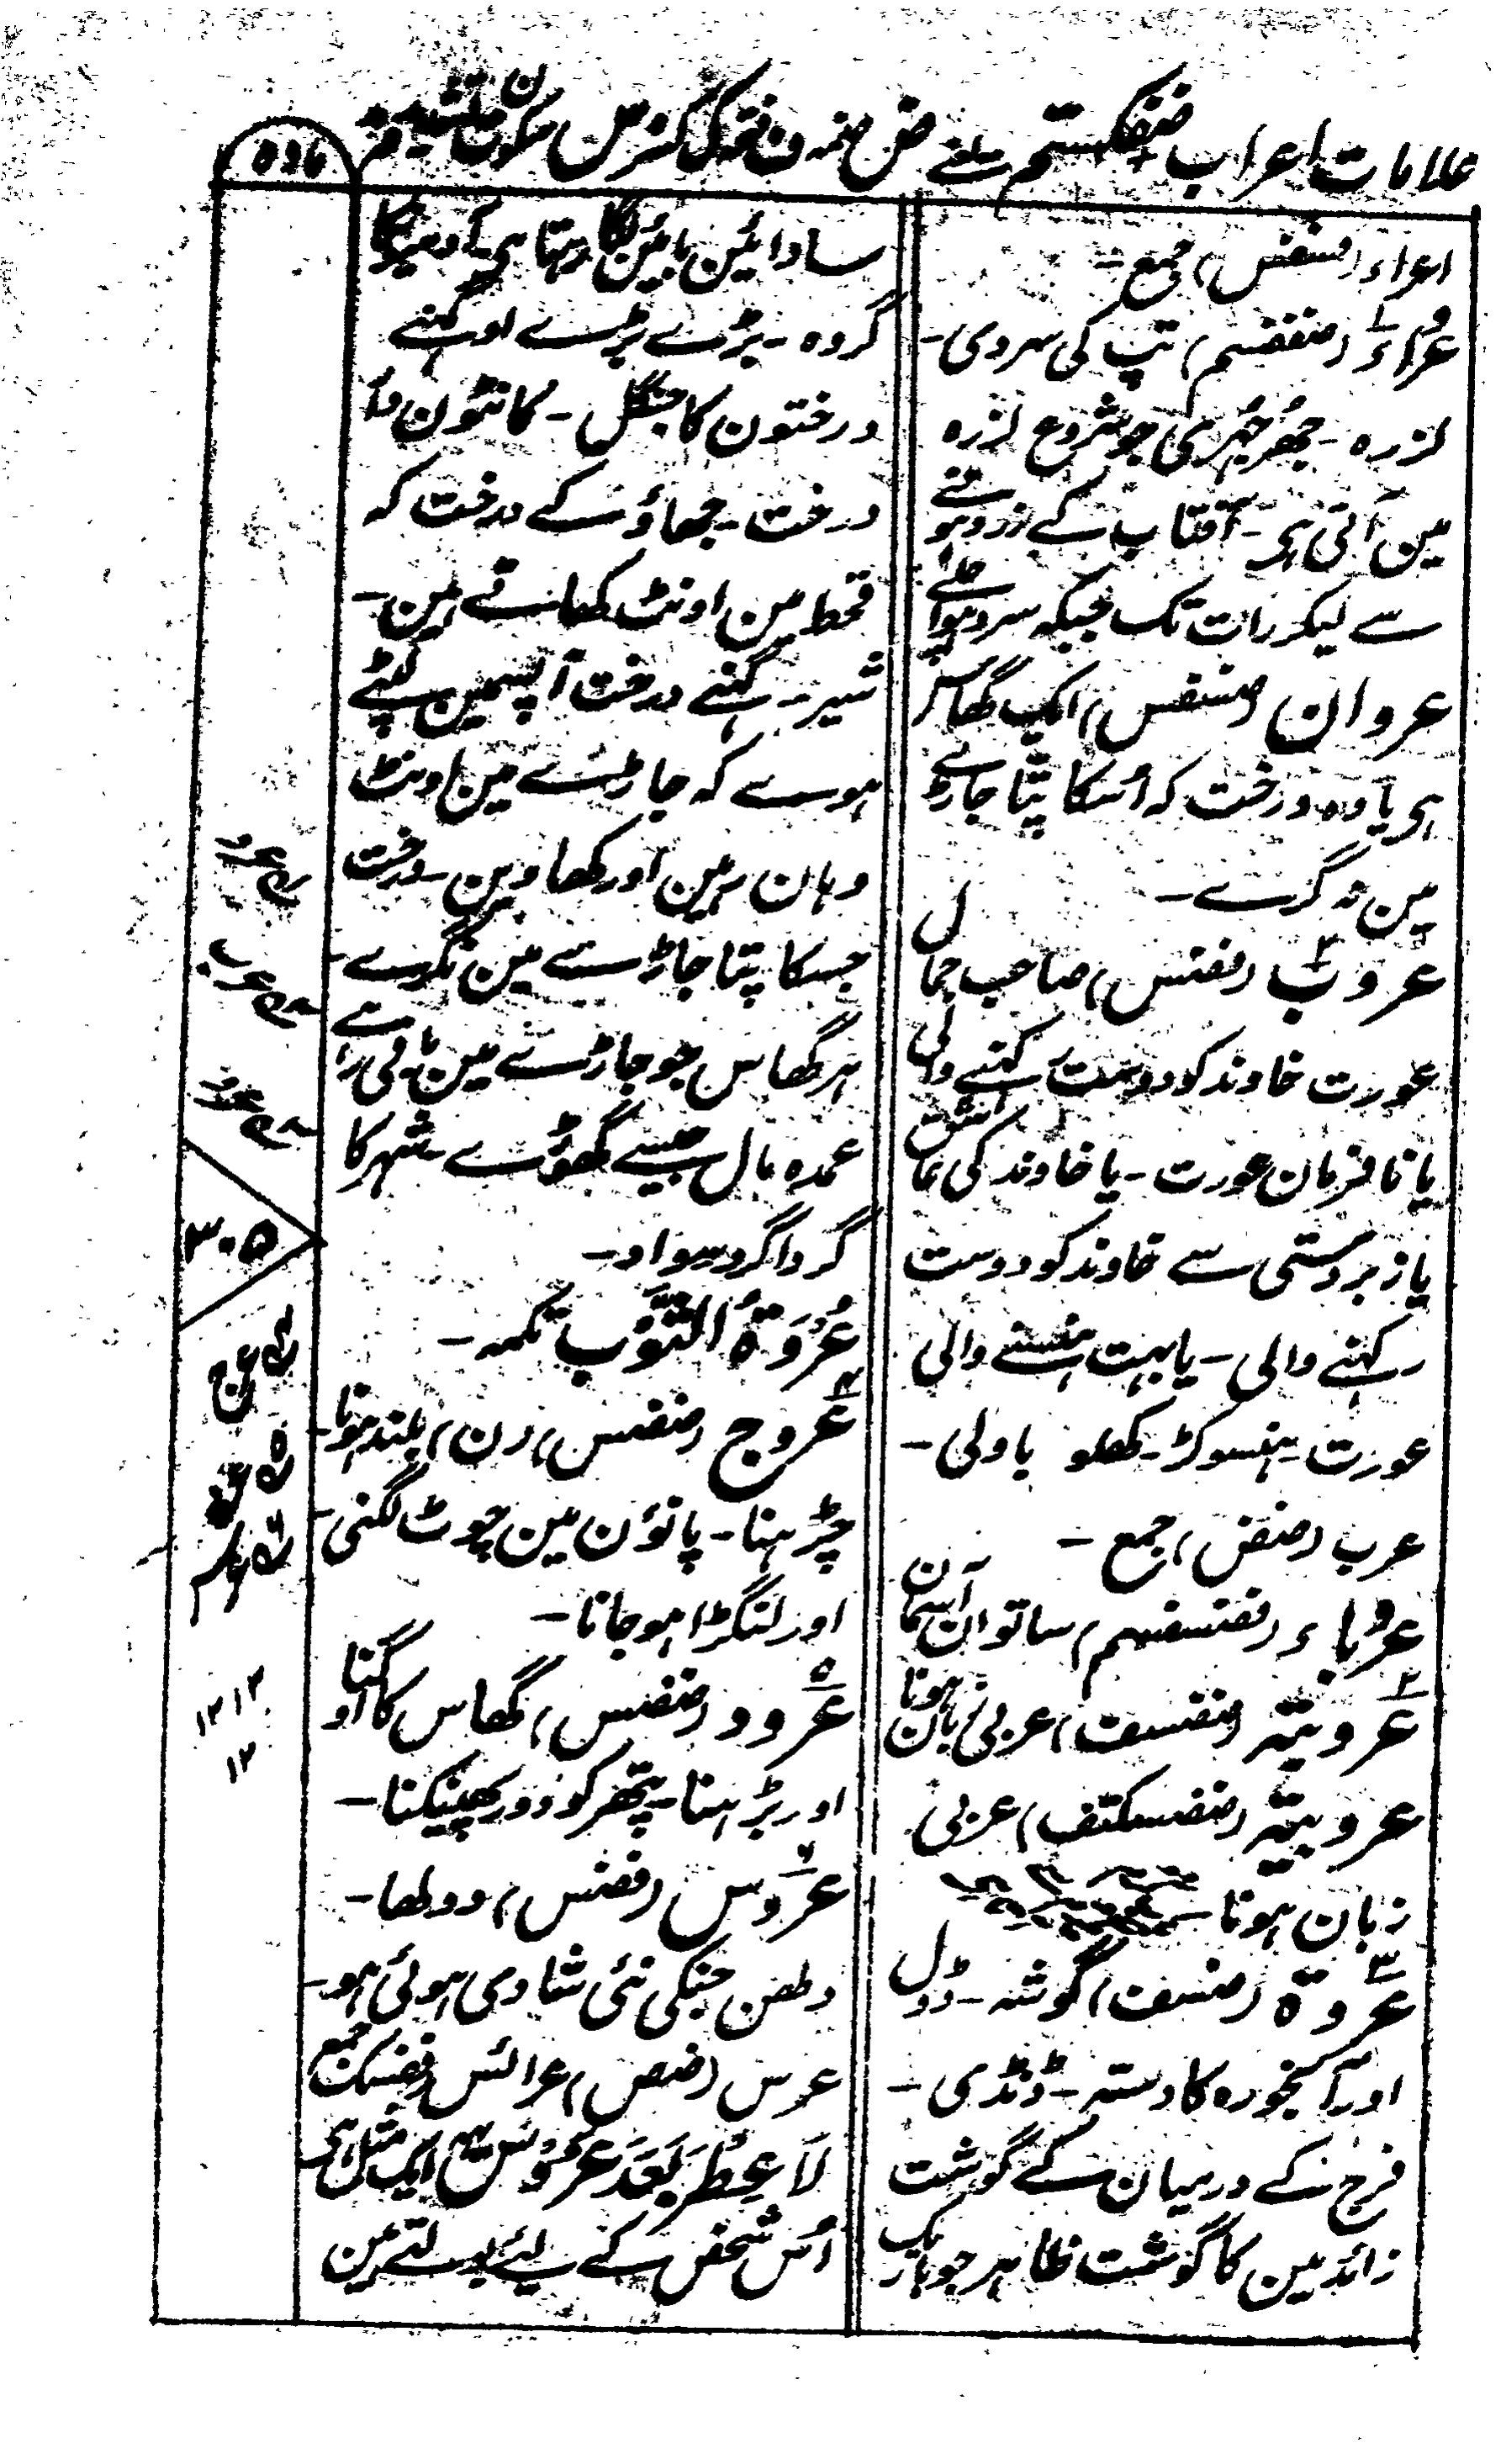 علامات اعراب ضفکستم یعنے ض ضمہ ف فتحہ ک کسرہ س سکون
مادہ
اعراء (فسفس) جمع -
عُرَوَاءُ (ضففسم) تپ کی سردی -
لزرہ - جھرجھری جو شروع لزرہ
مین آتی ہی - آفتاب کے زرد ہونے
سے لیکر رات تک جبکہ سرد ہوا چلے
عروان (ضسفس) ایک گھاس
ہی یا وہ درخت کہ اُسکا پتا جاڑے
مین نہ گرے -
عروب (فضس) صاحب جمال
عورت خاوند کو دوست رکہنے والی
یا نافرمان عورت - یا خاوند کی عاشق
یا زبردستی سے خاوند کو دوست
رکہنے والی - یا بہت ہنسنے والی
عورت - ہنسوکڑ - کھلو باولی -
عرب (ضض) جمع -
عروباء (فضسفم) ساتوان آسمان
عروبتہ (ضضسفت) عربی زبان ہونا
عروبیتہ (ضضسکتف) عربی
زبان ہونا
عروۃ (ضسف) گوشہ - ڈول
اور آبخورہ کا دستہ - ڈنڈی -
فرج کے درمیان کے گوشت
زائد مین کا گوشت ظاہر جو باریک
سا دائین بائین لگا رہتا ہی - آدمیونکا
گروہ - بڑے بڑے اور گہنے
درختون کا جنگل - کانٹون دار
درخت - جھاؤ کے درخت کہ
قحط مین اونٹ کھاتے ہین -
شیر - گہنے درخت آپسمین لپٹے
ہوے کہ جاڑے مین اونٹ
وہان رہین اور کھاوین - درخت
جسکا پتا جاڑے مین نگرے -
ہر گھاس جو جاڑے مین باقی رہے
عمدہ مال جیسے گھوڑے شہر کا
گرداگرد سواد -
عُرْوَۃُ الثَّوْب تکمہ -
عروج (ضضس) (ن) بلند ہونا -
چڑہنا - پانوُن مین چوٹ لگنی -
اور لنگڑا ہو جانا -
عرود (ضضس) گھاس کا اوگنا
اور بڑہنا - پتھر کو دور پھینکنا -
عروس (فضس) دولھا -
دلھن جنکی نئی شادی ہوئی ہو -
عرس (ضض) عرائس (ففسک) جمع
لَا عِطْرَ بَعْدَ عَرُوْسٍ یہہ ایک مثل ہی -
اُس شخص کے لیے بولتے ہین
۳۰۵
۱۲ ۱۳
۱۲